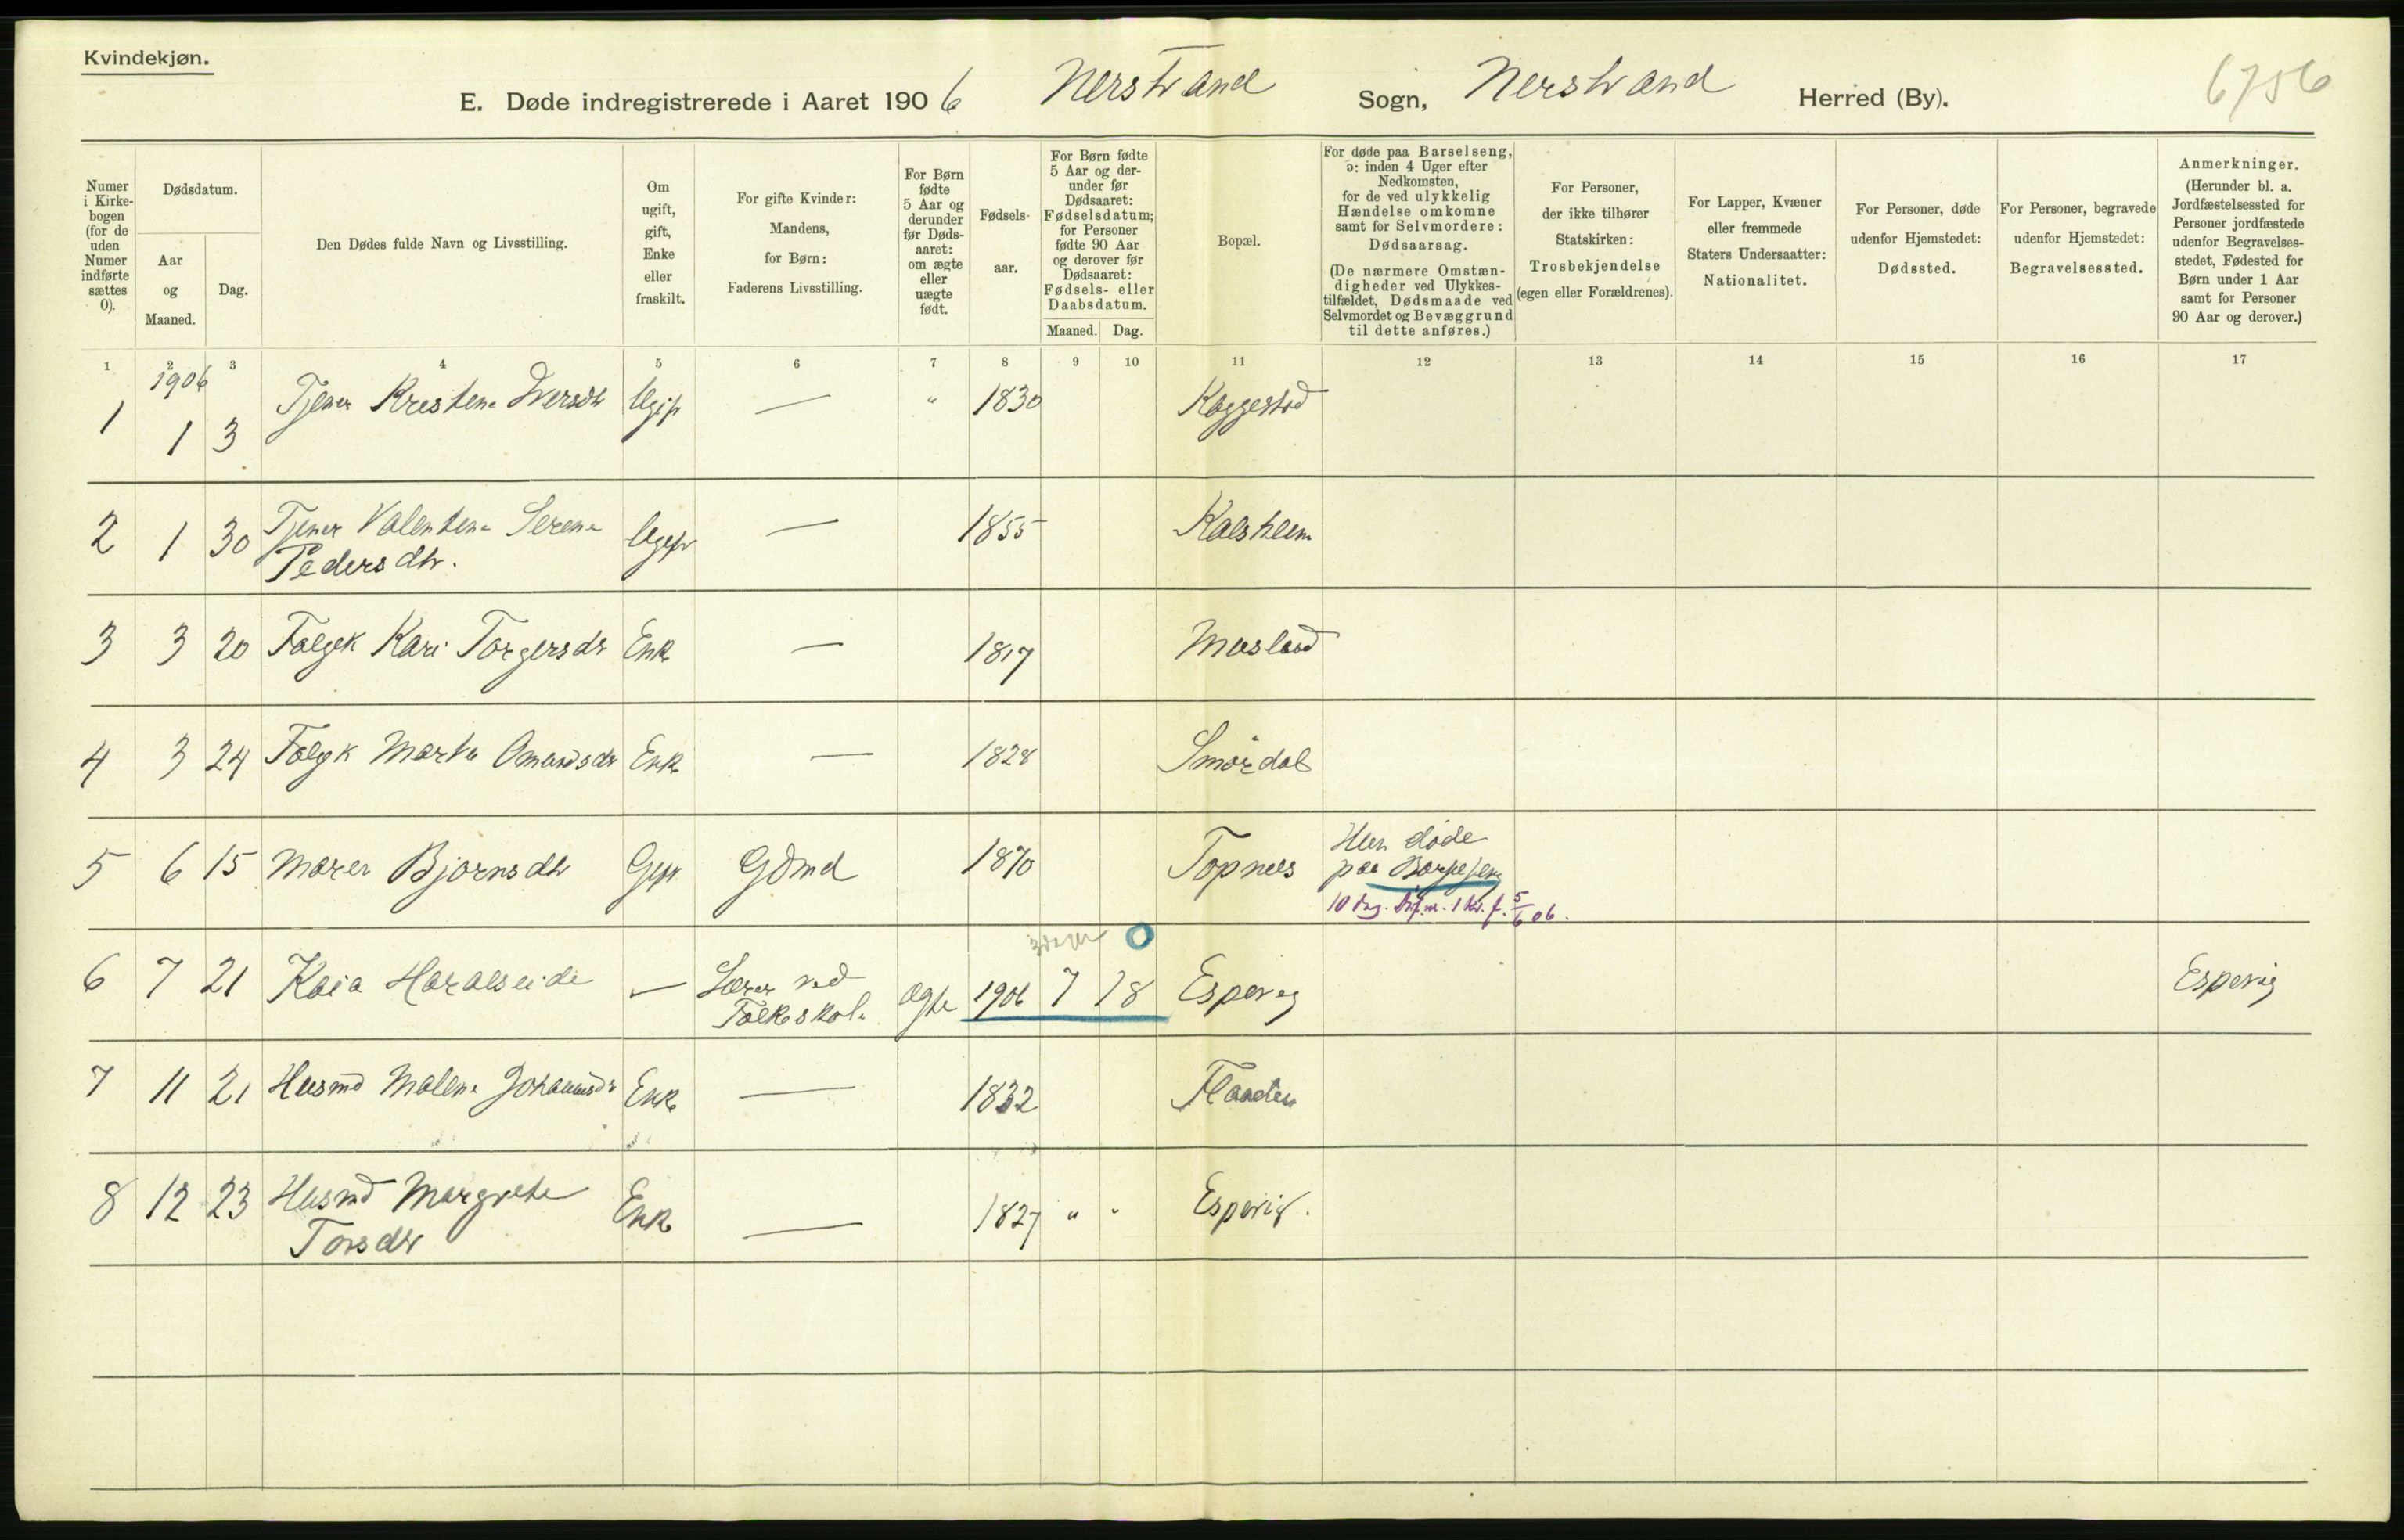 Kvindekjøn.
E. Døde indregistrerede i Aaret 1906 Nerstrand Sogn, Nerstrand Herred (By). 6756
Numer i Kirkebogen (for de uden Numer indførte sættes 0).
Dødsdatum.
Aar og Maaned.
Dag.
Den Dødes fulde Navn og Livsstilling.
Om ugift, gift, Enke eller fraskilt.
For gifte Kvinder: Mandens, for Børn: Faderens Livsstilling.
For Børn fødte 5 Aar og derunder før Dødsaaret: om ægte eller uægte født.
Fødselsaar.
For Børn fødte 5 Aar og derunder før Dødsaaret: Fødselsdatum; for Personer fødte 90 Aar og derover før Dødsaaret: Fødsels- eller Daabsdatum.
Maaned. Dag.
Bopæl.
For døde paa Barselseng, ɔ: inden 4 Uger efter Nedkomsten, for de ved ulykkelig Hændelse omkomne samt for Selvmordere: Dødsaarsag.
(De nærmere Omstændigheder ved Ulykkestilfældet, Dødsmaade ved Selvmordet og Bevæggrund til dette anføres.)
For Personer, der ikke tilhører Statskirken: Trosbekjendelse (egen eller Forældrenes).
For Lapper, Kvæner eller fremmede Staters Undersaatter: Nationalitet.
For Personer, døde udenfor Hjemstedet: Dødssted.
For Personer, begravede udenfor Hjemstedet: Begravelsessted.
Anmerkninger.
(Herunder bl. a. Jordfæstelsessted for Personer jordfæstede udenfor Begravelsesstedet, Fødested for Børn under 1 Aar samt for Personer 90 Aar og derover.)
1 2 3 4 5 6 7 8 9 10 11 12 13 14 15 16 17
1906
1 1 3 Tjener Kristene Iversdtr Ugift — " 1830 Kaggestad
2 1 30 Tjener Valentene Serene Ugift — 1855 Kalsheim
Pedersdtr.
3 3 20 Folgek Kari Torgersdr Enk — 1817 Musland
4 3 24 Folgk Marta Amundsdr Enk — 1828 Smørdal
5 6 15 Maren Bjørnsdtr Gift Gdmd 1870 Topnes Hun døde
paa Barselseng
10 dag. 1 Kv. f. 5/6 06.
3 dage 0
6 7 21 Kaia Haralseide — Lærer ved ægte 1906 7 18 Espevig Espevig
Folkeskole
7 11 21 Husmd Malene Johannesdr Enk — 1832 Flaaten
8 12 23 Husmd Margrete Enk — 1827 " " Espevig.
Torsdtr